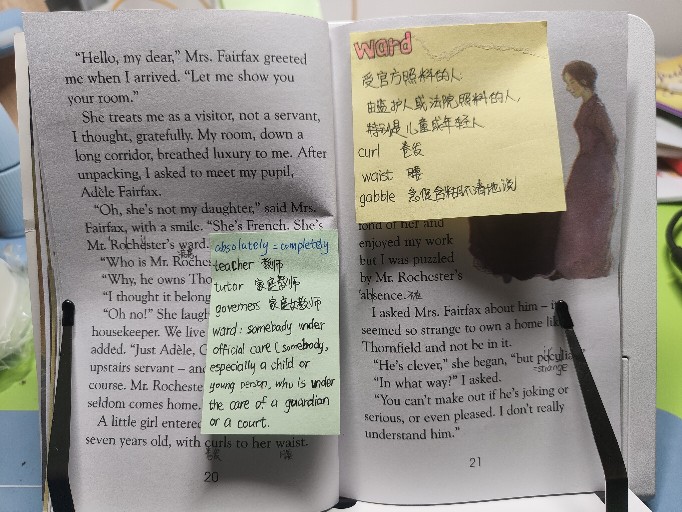 “Hello, my dear,” Mrs. Fairfax greeted
me when I arrived. “Let me show you
your room.”
She treats me as a visitor, not a servant,
I thought, gratefully. My room, down a
long corridor, breathed luxury to me. After
unpacking, I asked to meet my pupil,
Adèle Fairfax.
“Oh, she's not my daughter,” said Mrs.
Fairfax, with a smile. “She's French. She's
Mr. Rochester's ward.
“Who is Mr. Roches
“Why, he owns Tho
“I thought it belong
“Oh no!” She laugh
housekeeper. We live
added. “Just Adèle, G
upstairs servant – and
course. Mr. Rocheste
seldom comes home.
A little girl entered
seven years old, with curls to her waist.
卷发 腰
20
absolutely = completely
teacher 教师
tutor 家庭教师
governers 家庭女教师
ward: somebody under
official care (somebody,
especially a child or
young person, who is under
the care of a guardian
or a court.
ward
受官方照料的人
由监护人或法院照料的人,
特别是儿童或年轻人
curl 卷发
waist 腰
gabble 急促含糊不清地说
fond of her and
enjoyed my work
but I was puzzled
by Mr. Rochester's
absence.
I asked Mrs. Fairfax about him – it
seemed so strange to own a home like
Thornfield and not be in it.
“He's clever,” she began, “but peculiar
=strange
“In what way?” I asked.
“You can't make out if he's joking or
serious, or even pleased. I don't really
understand him.”
21